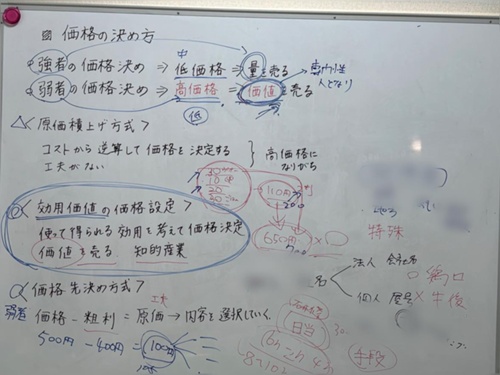 価格の決め方
強者の価格決め ⇒ 低価格 ⇒ 量を売る
中
弱者の価格決め ⇒ 高価格 = 価値を売る
低
専門性
人となり
<原価積上げ方式>
コストから逆算して価格を決定する
工夫がない
高価格に
なりがち
110円
650円
特殊
<効用価値の価格設定>
使って得られる効用を考えて価格決定
価値を売る 知的産業
法人 会社名
個人 屋号
名
<価格先決め方式>
工夫
弱者 価格 − 粗利 = 原価 → 内容を選択していく。
500円 − 400円 = 100円
日当
手段